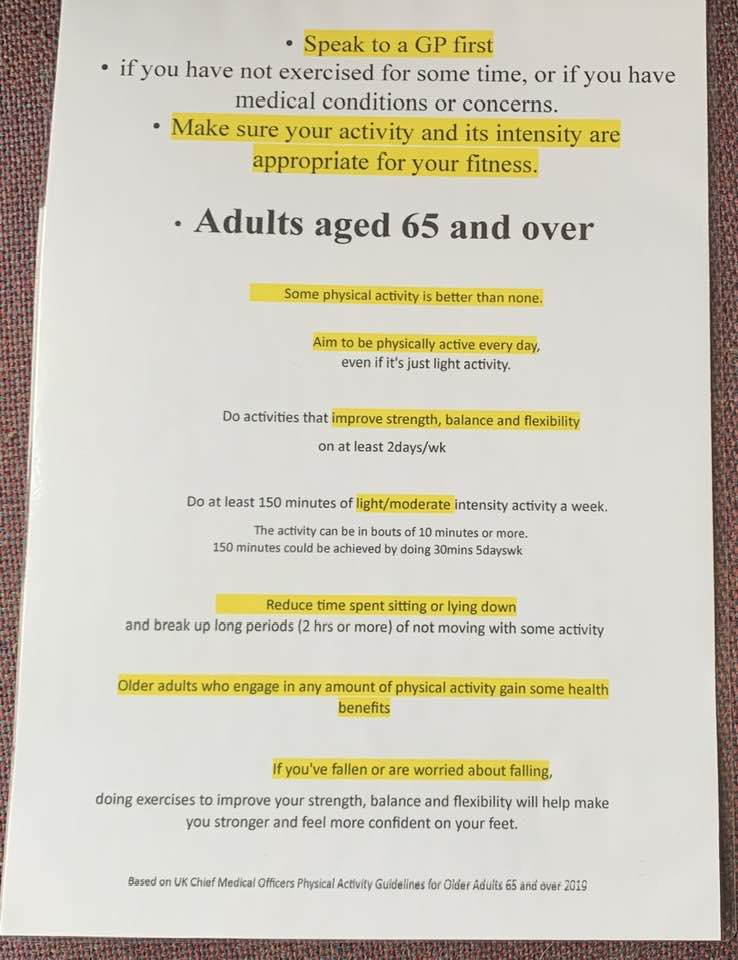 • Speak to a GP first
• if you have not exercised for some time, or if you have
medical conditions or concerns.
• Make sure your activity and its intensity are
appropriate for your fitness.
• Adults aged 65 and over
Some physical activity is better than none.
Aim to be physically active every day,
even if it's just light activity.
Do activities that improve strength, balance and flexibility
on at least 2days/wk
Do at least 150 minutes of light/moderate intensity activity a week.
The activity can be in bouts of 10 minutes or more.
150 minutes could be achieved by doing 30mins 5dayswk
Reduce time spent sitting or lying down
and break up long periods (2 hrs or more) of not moving with some activity
Older adults who engage in any amount of physical activity gain some health
benefits
If you've fallen or are worried about falling,
doing exercises to improve your strength, balance and flexibility will help make
you stronger and feel more confident on your feet.
Based on UK Chief Medical Officers Physical Activity Guidelines for Older Adults 65 and over 2019